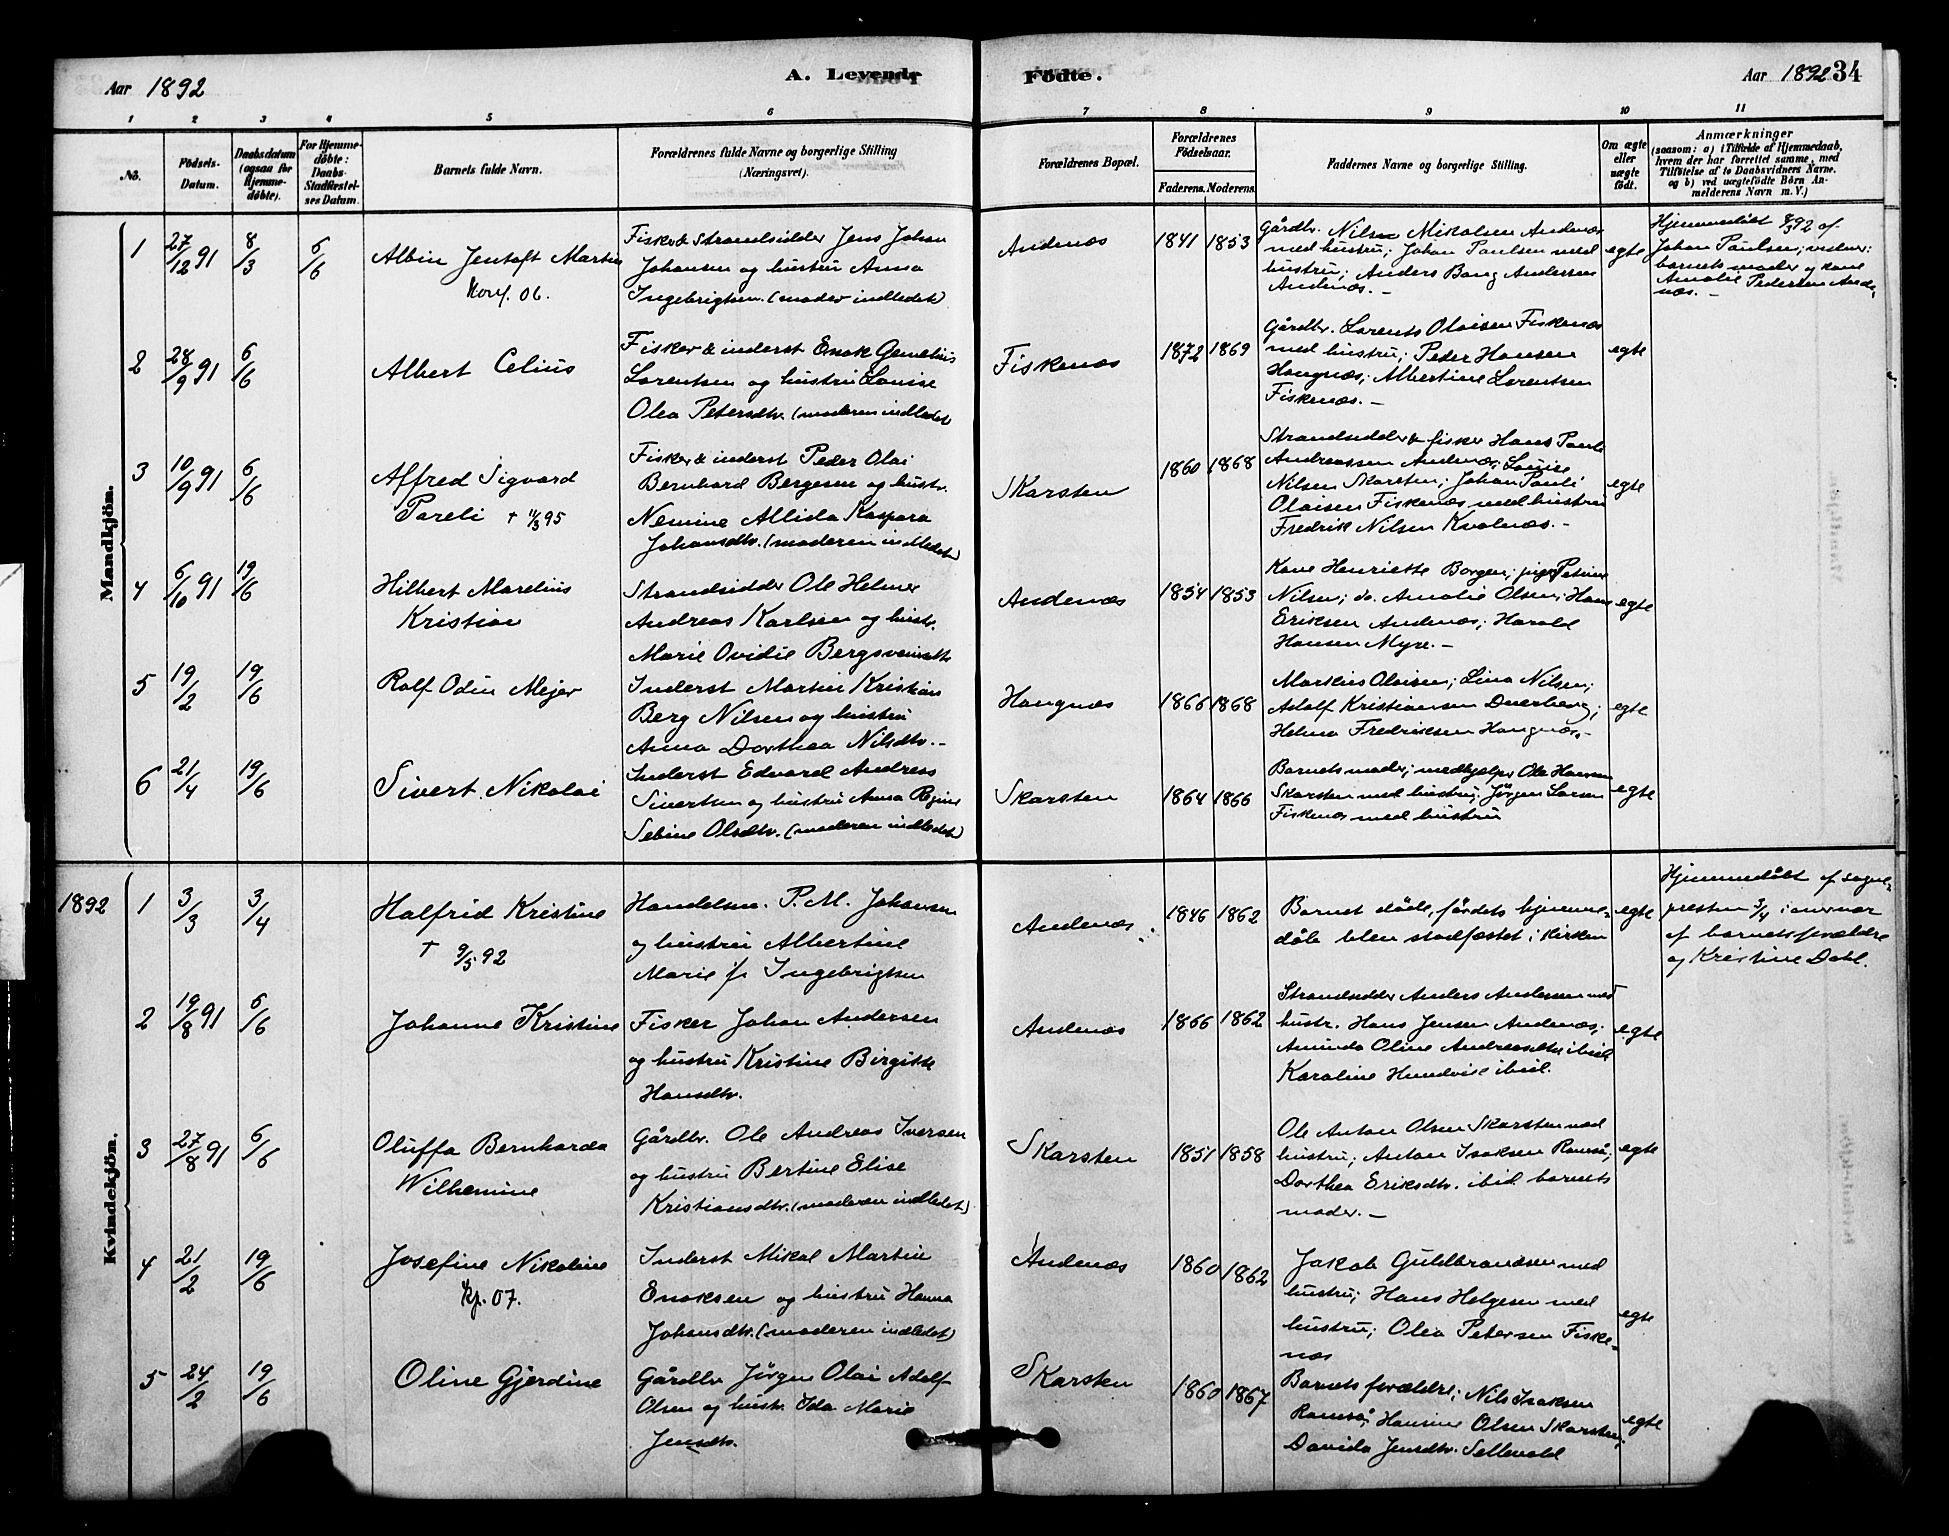 Aar 1892
A. Levende
Fødte.
Aar 1892 34
1 2 3 4 5 6 7 8 9 10 11
No.
Födsels-
Datum.
Daabsdatum
(ogsaa for
Hjemme-
døbte).
For Hjemme-
døbte:
Daabs-
Stadfæstel-
ses Datum.
Barnets fulde Navn.
Forældrenes fulde Navne og borgerlige Stilling
(Næringsvei).
Forældrenes Bopæl.
Forældrenes
Fødselsaar.
Faderens. Moderens.
Faddernes Navne og borgerlige Stilling.
Om ægte
eller
uægte
født.
Anmærkninger
(saasom: a) i Tilfælde af Hjemmedaab,
hvem der har forrettet samme, med
Tilføielse af to Daabsvidners Navne.
og b) ved uægtefødte Børn An-
melderens Navn m. V.)
Mandkjön.
1 27/12 91 8/3 6/6
Albin Jentoft Martin
Konf. 06.
Fisker & Strandsidder Jens Johan
Johansen og hustru Anna
Ingebrigtsen. (moder indledet)
Andenæs
1841 1853
Gårdbr. Nils Mikalsen Andenæs
med hustru; Johan Paulsen med
hustru; Anders Bang Andersen
Andenæs. -
egte
Hjemmedøbt 8/3 92 af
Johan Paulsen; vidner:
barnets moder og kone
Amalie Pedersen Ande-
næs. -
2 28/9 91 6/6
Albert Celius
Fisker & inderst Enok Gemelius
Lorentsen og hustru Louise
Olea Petersdtr. (moderen indledet)
Fiskenæs
1872 1869
Gårdbr. Lorents Olaisen Fiskenæs
med hustru; Peder Hansen
Haugnæs; Albertine Lorentsen
Fiskenæs. -
egte
3 10/9 91 6/6
Alfred Sigvard
Pareli † 11/3 95
Fisker & inderst Peder Olai
Bernhard Bergesen og hustr.
Nemine Allida Kaspara
Johansdtr. (moderen indledet)
Skarsten
1860 1868
Strandsidder & fisker Hans Pauli
Andreassen Andenæs; Louise
Nilsen Skarsten; Johan Pauli
Olaisen Fiskenæs med hustru
Fredrik Nilsen Kvalnæs. -
egte
4 6/10 91 19/6
Hilbert Marelius
Kristian
Strandsidder Ole Helmer
Andreas Karlsen og hustr.
Marie Ovidie Bergsveinsdtr
Andenæs
1854 1853
Kone Henriette Borgen; pige Petrine
Nilsen; do. Amalie Olsen; Hans
Eriksen Andenæs; Harald
Hansen Myre. -
egte
5 19/2 19/6
Rolf Odin Mejer
Inderst Martin Kristian
Berg Nilsen og hustru
Anna Dorthea Nilsdtr. -
Haugnæs
1866 1868
Markus Olaisen; Lina Nilsen;
Adolf Kristiansen Dverberg;
Helma Fredriksen Haugnæs. -
egte
6 21/4 19/6
Sivert Nikolai
Inderst Edvard Andreas
Sivertsen og hustru Anna Regine
Sebine Olsdtr. (moderen indledet)
Skarsten
1864 1866
Barnets moder; medhjelper Ole Hansen
Skarsten med hustru; Jørgen Larsen
Fiskenæs med hustru
egte
Kvindekjön.
1892 1 3/3 3/4
Halfrid Kristine
† 9/5 92
Handelsm. P. M. Johansen
og hustru Albertine
Marie f. Ingebrigtsen
Andenæs
1846 1862
Barnet døde, førdets hjemme-
dåb blev stadfæstet i kirken
egte
Hjemmedøbt af sogne-
presten 3/4 i nærvær
af barnets forældre
og Kristine Dahl.
2 19/8 91 6/6
Johanne Kristine
Fisker Johan Andersen
og hustru Kristine Birgitte
Hansdtr.
Andenæs
1866 1862
Strandsidder Anders Andersen med
hustr. Hans Jensen Andenæs;
Aminda Oline Andreasdtr ibid
Karoline Hundvise ibid.
egte
3 27/8 91 6/6
Oluffa Bernharda
Wilhemine
Gårdbr. Ole Andreas Iversen
og hustru Bertine Elise
Kristiansdtr. (moderen indledet)
Skarsten
1851 1858
Ole Anton Olsen Skarsten med
hustru; Anton Isaksen Ramså;
Dorthea Eriksdtr. ibid. barnets
moder. -
egte
4 21/2 19/6
Josefine Nikoline
kf. 07.
Inderst Mikal Martin
Enoksen og hustru Hanna
Johansdtr. (moderen indledet)
Andenæs
1860 1862
Jakob Guldbrandsen med
hustru; Hans Helgesen med
hustru; Olea Petersen Fiske-
næs
egte
5 24/2 19/6
Oline Gjerdine
Gårdbr Jörgen Olai Adolf
Olsen og hustr. Ida Marie
Jensdtr.
Skarsten
1860 1867
Barnets forældre; Nils Isaksen
Ramså; Hansine Olsen Skarsten;
Davida Jensdtr. Sellevold
egte